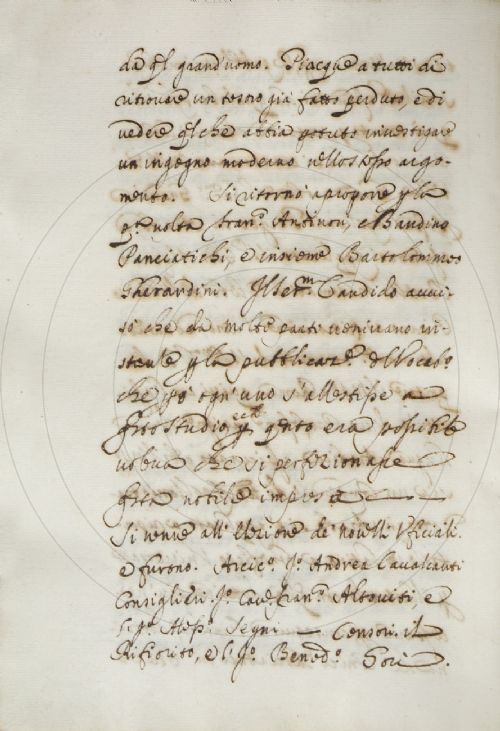 da q.l grand'uomo. Piacque a tutti di
ritrovare un tesoro già fatto perduto, e di
vedere q.l che abbia potuto investigare
un ingegno moderno nello stesso argo-
mento. Si ritornò a proporre p. la
p.a volta Fran.o Antinori, e Bandino
Panciatichi, e insieme Bartolommeo
Gherardini. Il Ser.m Candido avvi-
sò che da molte parti venivano in-
stanze p. la pubblicaz.e del Vocab.o
che p.ò ogn'uno s'allestisse a
q.to studio, e che p. q.nto era possibile
voleva che si perfezionasse
q.ta nobile impresa
Si venne all'elezione de' novelli Vficiali.
e furono. Arcic.o S.r Andrea Cavalcanti
Consiglieri. S.r Cav. Fran.o Altoviti, e
Sig.r Aless.o Segni — Censori. il
Rifiorito, e l S.r Bened.o Gori.